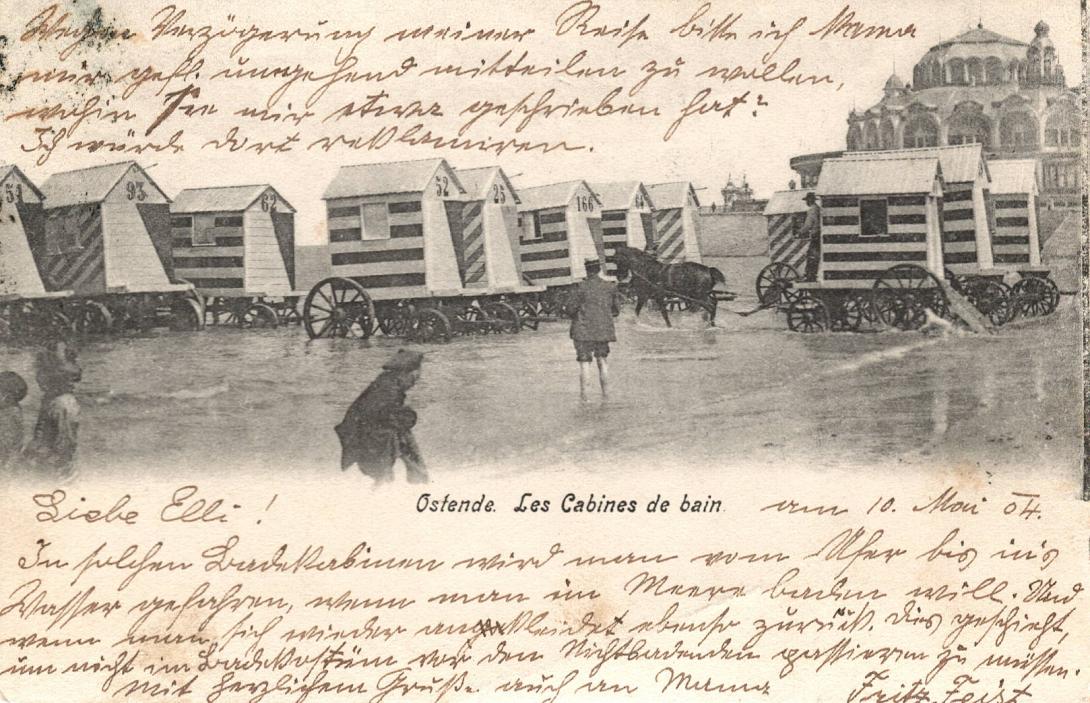 Wegen Verzögerung meiner Reise bitte ich Mama
mir gefl. umgehend mitteilen zu wollen,
wohin Sie mir etwa geschrieben hat?
Ich würde dort reklamiren.
51 93 62 52 25 166 64
Liebe Elli!
Ostende. Les Cabines de bain.
am 10. Mai 04.
In solchen Badekabinen wird man vom Ufer bis in's
Wasser gefahren, wenn man im Meere baden will. Und
wenn man sich wieder ankleidet ebenso zurück. Dies geschieht,
um nicht im Badekostüm vor den Nichtbadenden passieren zu müssen.
Mit herzlichem Gruße auch an Mama
Fritz Feist